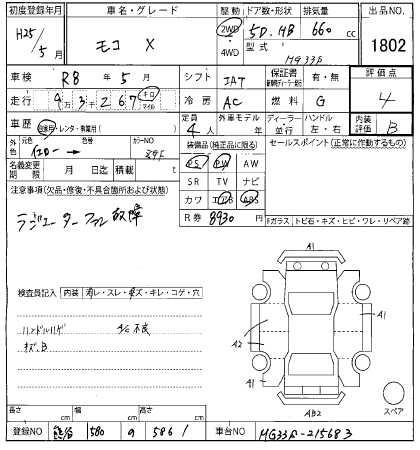 初度登録年月 車名・グレード 駆動 ドア数・形状 排気量 出品NO
H25/5月 モコ X 2WD 4WD 5D.HB 660 cc 1802
型式 MG33S
車検 R8年5月 シフト IAT 保証書 有・無 評価点
走行 9万3千267 キロ マイル 冷房 AC 燃料 G 4
車歴 自家用・レンタ・事業用( ) 定員 4人 外車モデル年 ディーラー・並行 ハンドル 左・右 内装評価 B
外色 元色 色 → カラーNO Z9F
装備品(純正品に限る) セールスポイント(正常に動作するもの)
名義変更期限 月 日迄 積載 t
PS PW AW
SR TV ナビ
カワ エアB ABS
R券 8930 円
注意事項(欠品・修復・不具合箇所および状態)
ラジエーターファン故障
Fガラス トビ石・キズ・ヒビ・ワレ・リペア跡
検査員記入 内装 ・スレ・キズ・キレ・コゲ・穴
ハンドルハゲ A/C 不良
キズ.B
A1
A2
A1
A1
AB2
スペア
長さ cm 幅 cm 高さ cm
登録NO 熊谷 580 9 5861 車台NO MG33S-215683